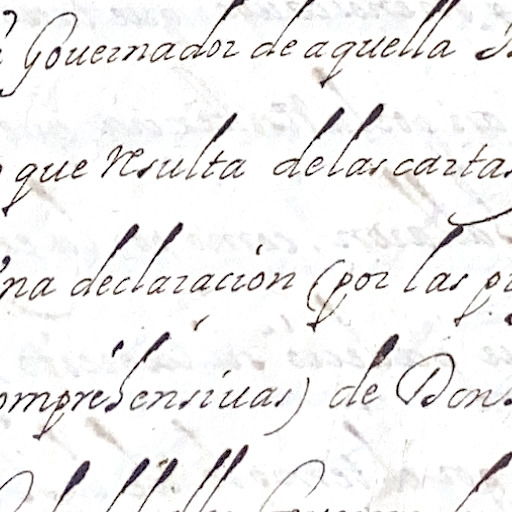 Gouernador de aquella
que resulta de las cartas
na declaracion (por las
omprehensiuas) de Don